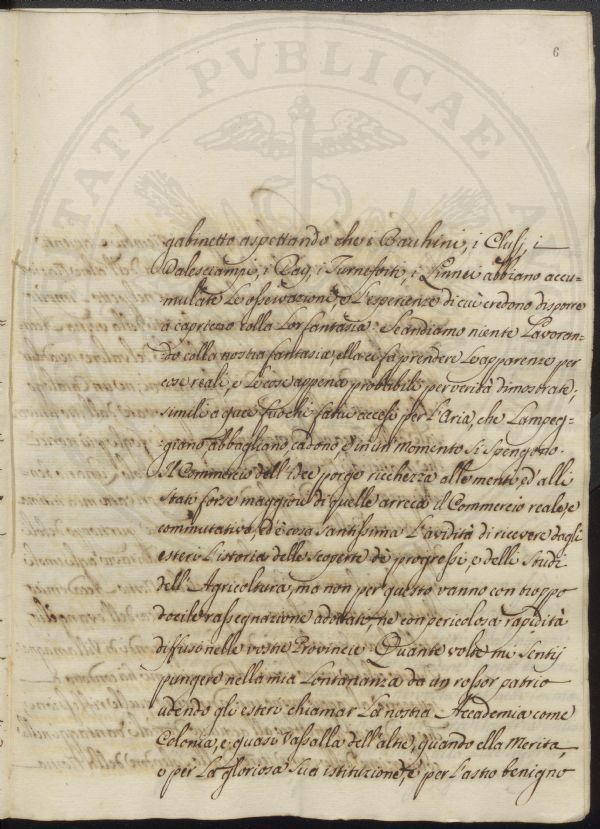 6
gabinetto aspettando che i Bauhini, i Clusj, i
Dalesciampi, i Ray, i Turneforti, i Linnei abbiano accu=
mulate le osservazioni, e l'esperienze di cui credono disporre
a capriccio colla lor fantasia. Se andiamo niente lavoran=
do colla nostra fantasia, ella ci fà prendere le apparenze per
cose reali, e le cose appena probabili per verità dimostrate,
simili a que' fuochi fatui accesi per l'aria, che lampeg=
=giano, abbagliano, cadono, e in un momento si spengono.
Il Commercio dell'idee porge ricchezza alle menti, ed alli
Stati forse maggiori di quelle arreca il Commercio reale, e
commutativo, ed è cosa santissima l'avidità di ricevere dagli
esteri l'istoria delle scoperte de' progressi, e delli studi
dell'Agricoltura, ma non per questo vanno con troppo
docile rassegnazione adottate, ne con pericolosa rapidità
diffuse nelle vostre Provincie. Quante volte mi sentij
pungere nella mia lontananza da un rossor patrio
udendo gli esteri chiamar la nostra Accademia come
Colonia, e quasi vassalla dell'altre, quando ella merita,
o per la gloriosa sua istituzione, e per l'astro benigno
PVBLICAE